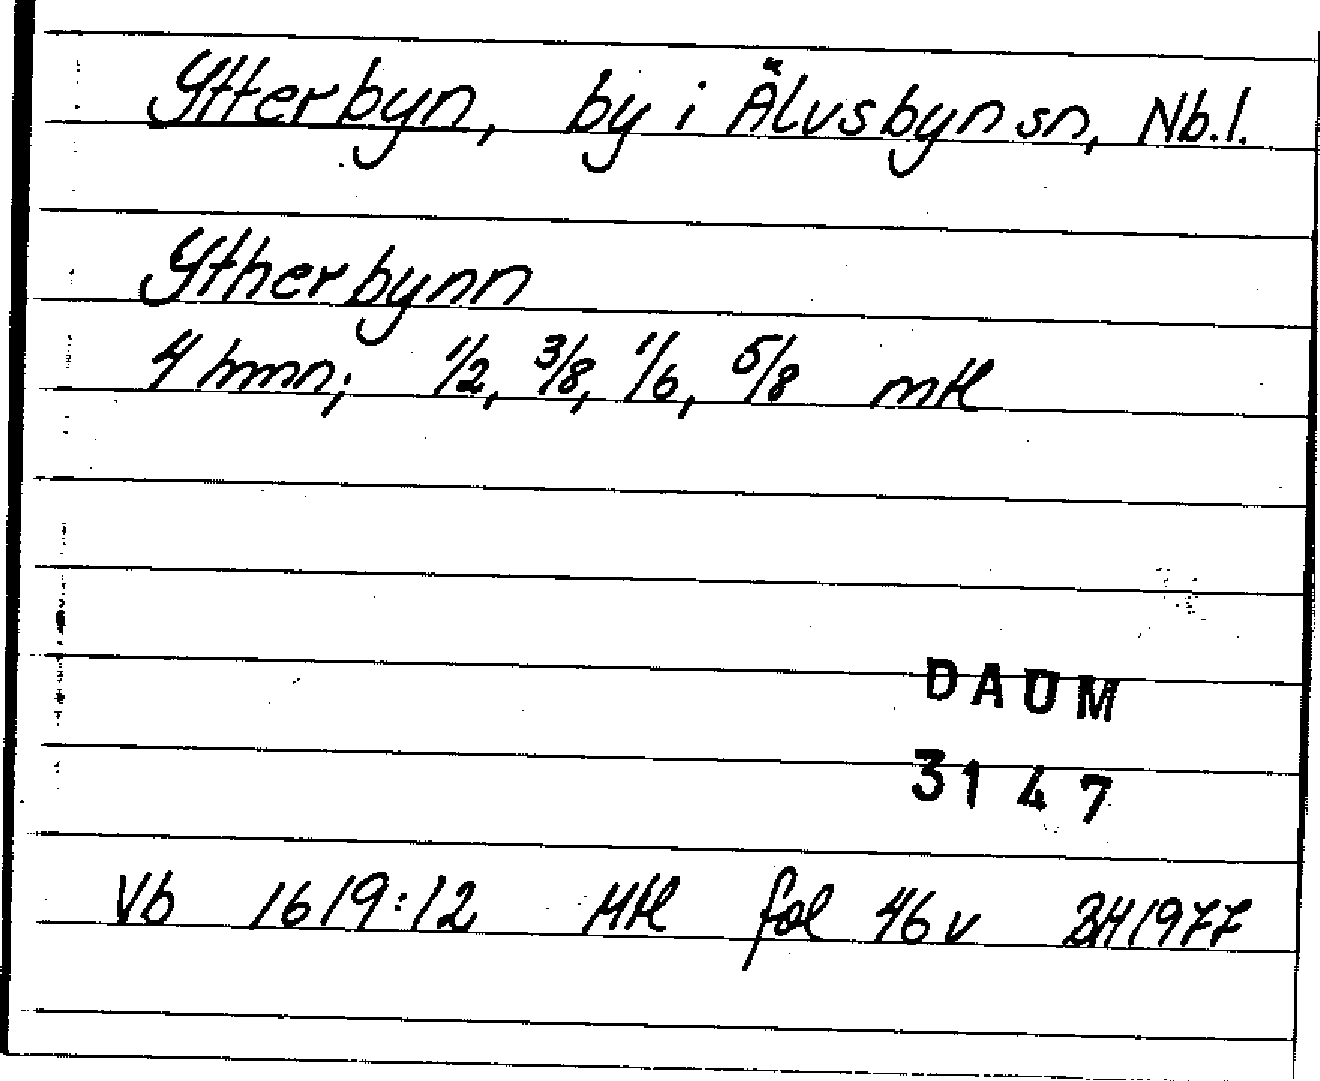 Ytterbyn, by i Älvsbyn sn, Nb.l.
Ytherbynn
4 hmn; 1/2, 3/8, 1/6, 5/8 mtl
DAUM
3147
Vb 1619:12 Mtl fol 46 v BH 1977